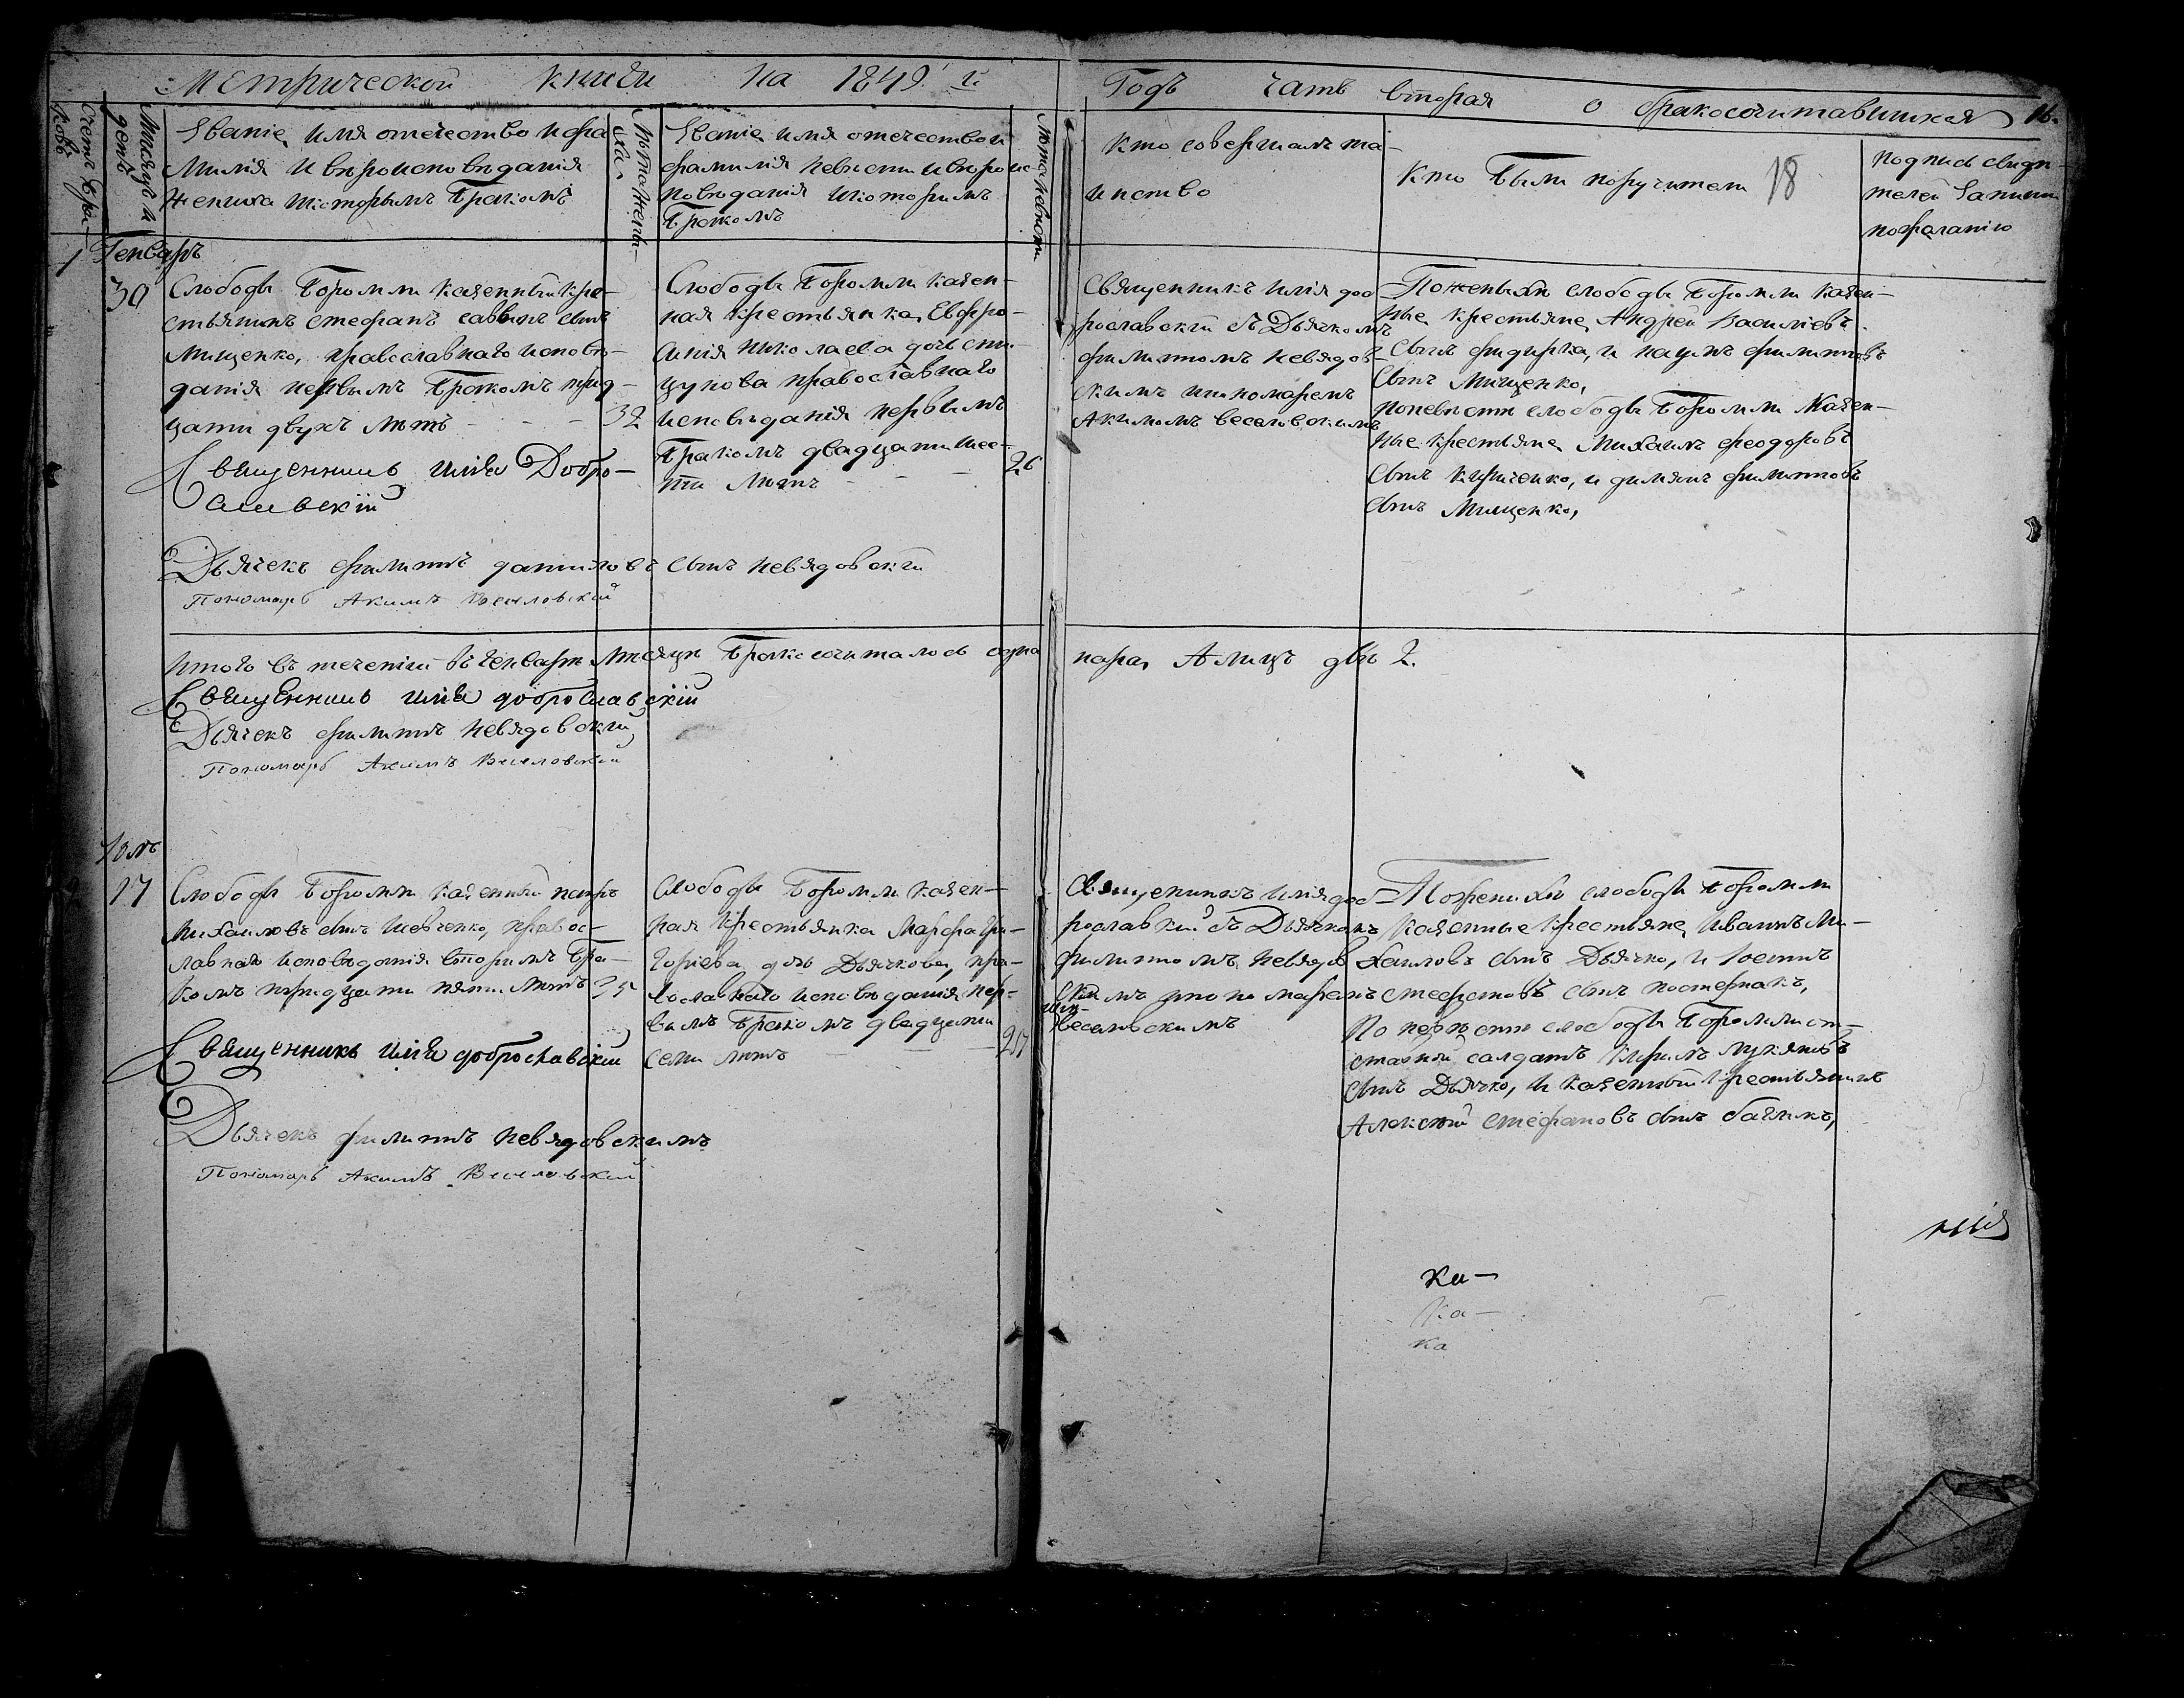 Метрической книги на 1849й Годъ часть вторая о бракосочитавшихся 16.
Счетъ бра-
ковъ
Месяцъ и
день
Званіе, имя отечество и фа
милія и вѣроисповѣданія
жениха и которымъ бракомъ
Лѣта жени-
ха
Званіе имя отечество и
фамилія невѣсты и вѣроис-
повѣданія и которымъ
бракомъ
Лѣта невѣсты
Кто совершалъ та-
инство
Кто были поручители 18
подпись свиде-
телей записи
по желанію
1 Генварь
30
Слободы Боромли казенный кре-
стьянинъ Стефанъ Саввинъ сынъ
Мищенко, православнаго исповѣ-
данія первымъ бракомъ трид-
цати двухъ лѣтъ - - - 32
Священникъ Илія Добро-
славскій
Слободы Боромли казен-
ная крестьянка, Евфро-
синія Николаева дочь
православнаго
исповѣданія первымъ
бракомъ двадцати шес-
ти лѣтъ - - - 26
Священникъ Илія доб-
рославскій съ Дьячкомъ
филиппомъ Невядов-
скимъ и пономаремъ
Акимомъ Веселовскимъ
По женихѣ слободы Боромли казен-
ные крестьяне, Андрей Василіевъ
сынъ и Наумъ филипповъ
сынъ Мищенко,
по невѣсти слободы Боромли Казен-
ные крестьяне Михаилъ феодоровъ
сынъ Кириченко, и филипповъ
сынъ Мищенко,
Дьячекъ филиппъ даниловъ сынъ Невядовскій
Пономарь Акимъ Веселовскій
Итого въ теченіи въ генварѣ месяцѣ бракосочиталось одна пара, А лицъ двѣ 2.
Священникъ Илія доброславскій
Дьячекъ филиппъ Невядовскій
Пономарь Акимъ Веселовскій
Юль
2 17
Слободы Боромли казенный
Михаиловъ сынъ Шевченко, правос-
лавнаго исповѣданія вторымъ бра-
комъ тридцати пяти лѣтъ 35
Священникъ Илія доброславскій
Слободы Боромли казен-
ная крестьянка Марфа Гри-
горіева дочь Дьячкова, пра-
вославнаго исповѣданія, пер-
вымъ бракомъ двадцати
семи лѣтъ - - - 27
Священникъ Илія доб-
рославскій съ Дьячкомъ
филиппомъ Невядов
скимъ пономаремъ
веселовскимъ
По женихѣ слободы Боромли
казенные крестьяне, Иванъ Ми-
хаиловъ сынъ Дьячко, и
стефановъ сынъ постернакъ,
По невѣсти слободы Боромли от-
ставной салдатъ Кирилъ Лукяновъ
сынъ Дьячко, и казенный крестьянинъ
Алексѣй Стефановъ сынъ бачикъ,
Дьячекъ филиппъ Невядовскимъ
Пономарь Акимъ Веселовскій
ка-
ка-
ка